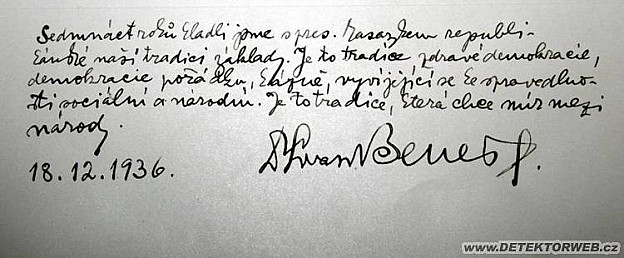 Sedmnáct roků kladli jsme s pres. Masarykem republi-
kánské naší tradici základy. Je to tradice zdravé demokracie,
demokracie pořádku, kázně, vyvíjející se ke spravedlno-
sti sociální a národní. Je to tradice, která chce mír mezi
národy.
18.12.1936.
Dr Edvard Beneš
WWW.DETEKTORWEB.CZ